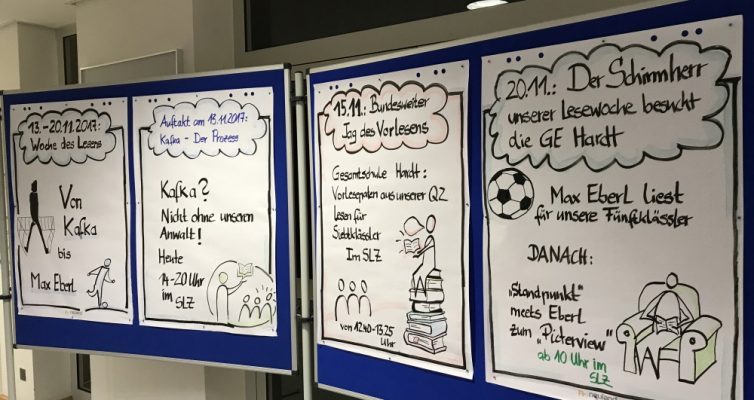 13.-20.11.2017:
Woche des Lesens
Von
Kafka
bis
Max Eberl
Auftakt am 13.11.2017:
Kafka - Der Prozess
Kafka?
Nicht ohne unseren
Anwalt!
Heute
14-20 Uhr
im
SLZ
15.11.: Bundesweiter
Tag des Vorlesens
Gesamtschule Hardt:
Vorlesepaten aus unserer Q2
lesen für
Siebtklässler
Im SLZ
von 12.40-13.25
Uhr
20.11.: Der Schirmherr
unserer Lesewoche besucht
die GE Hardt
Max Eberl liest
für unsere Fünftklässler
DANACH:
„Standpunkt"
meets Eberl
zum „Picterview"
ab 10 Uhr im
SLZ
neuland